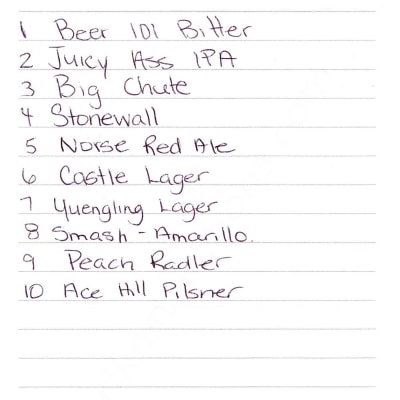 1 Beer 101 Bitter
2 Juicy Ass IPA
3 Big Chute
4 Stonewall
5 Norse Red Ale
6 Castle Lager
7 Yuengling Lager
8 Smash - Amarillo.
9 Peach Radler
10 Ace Hill Pilsner